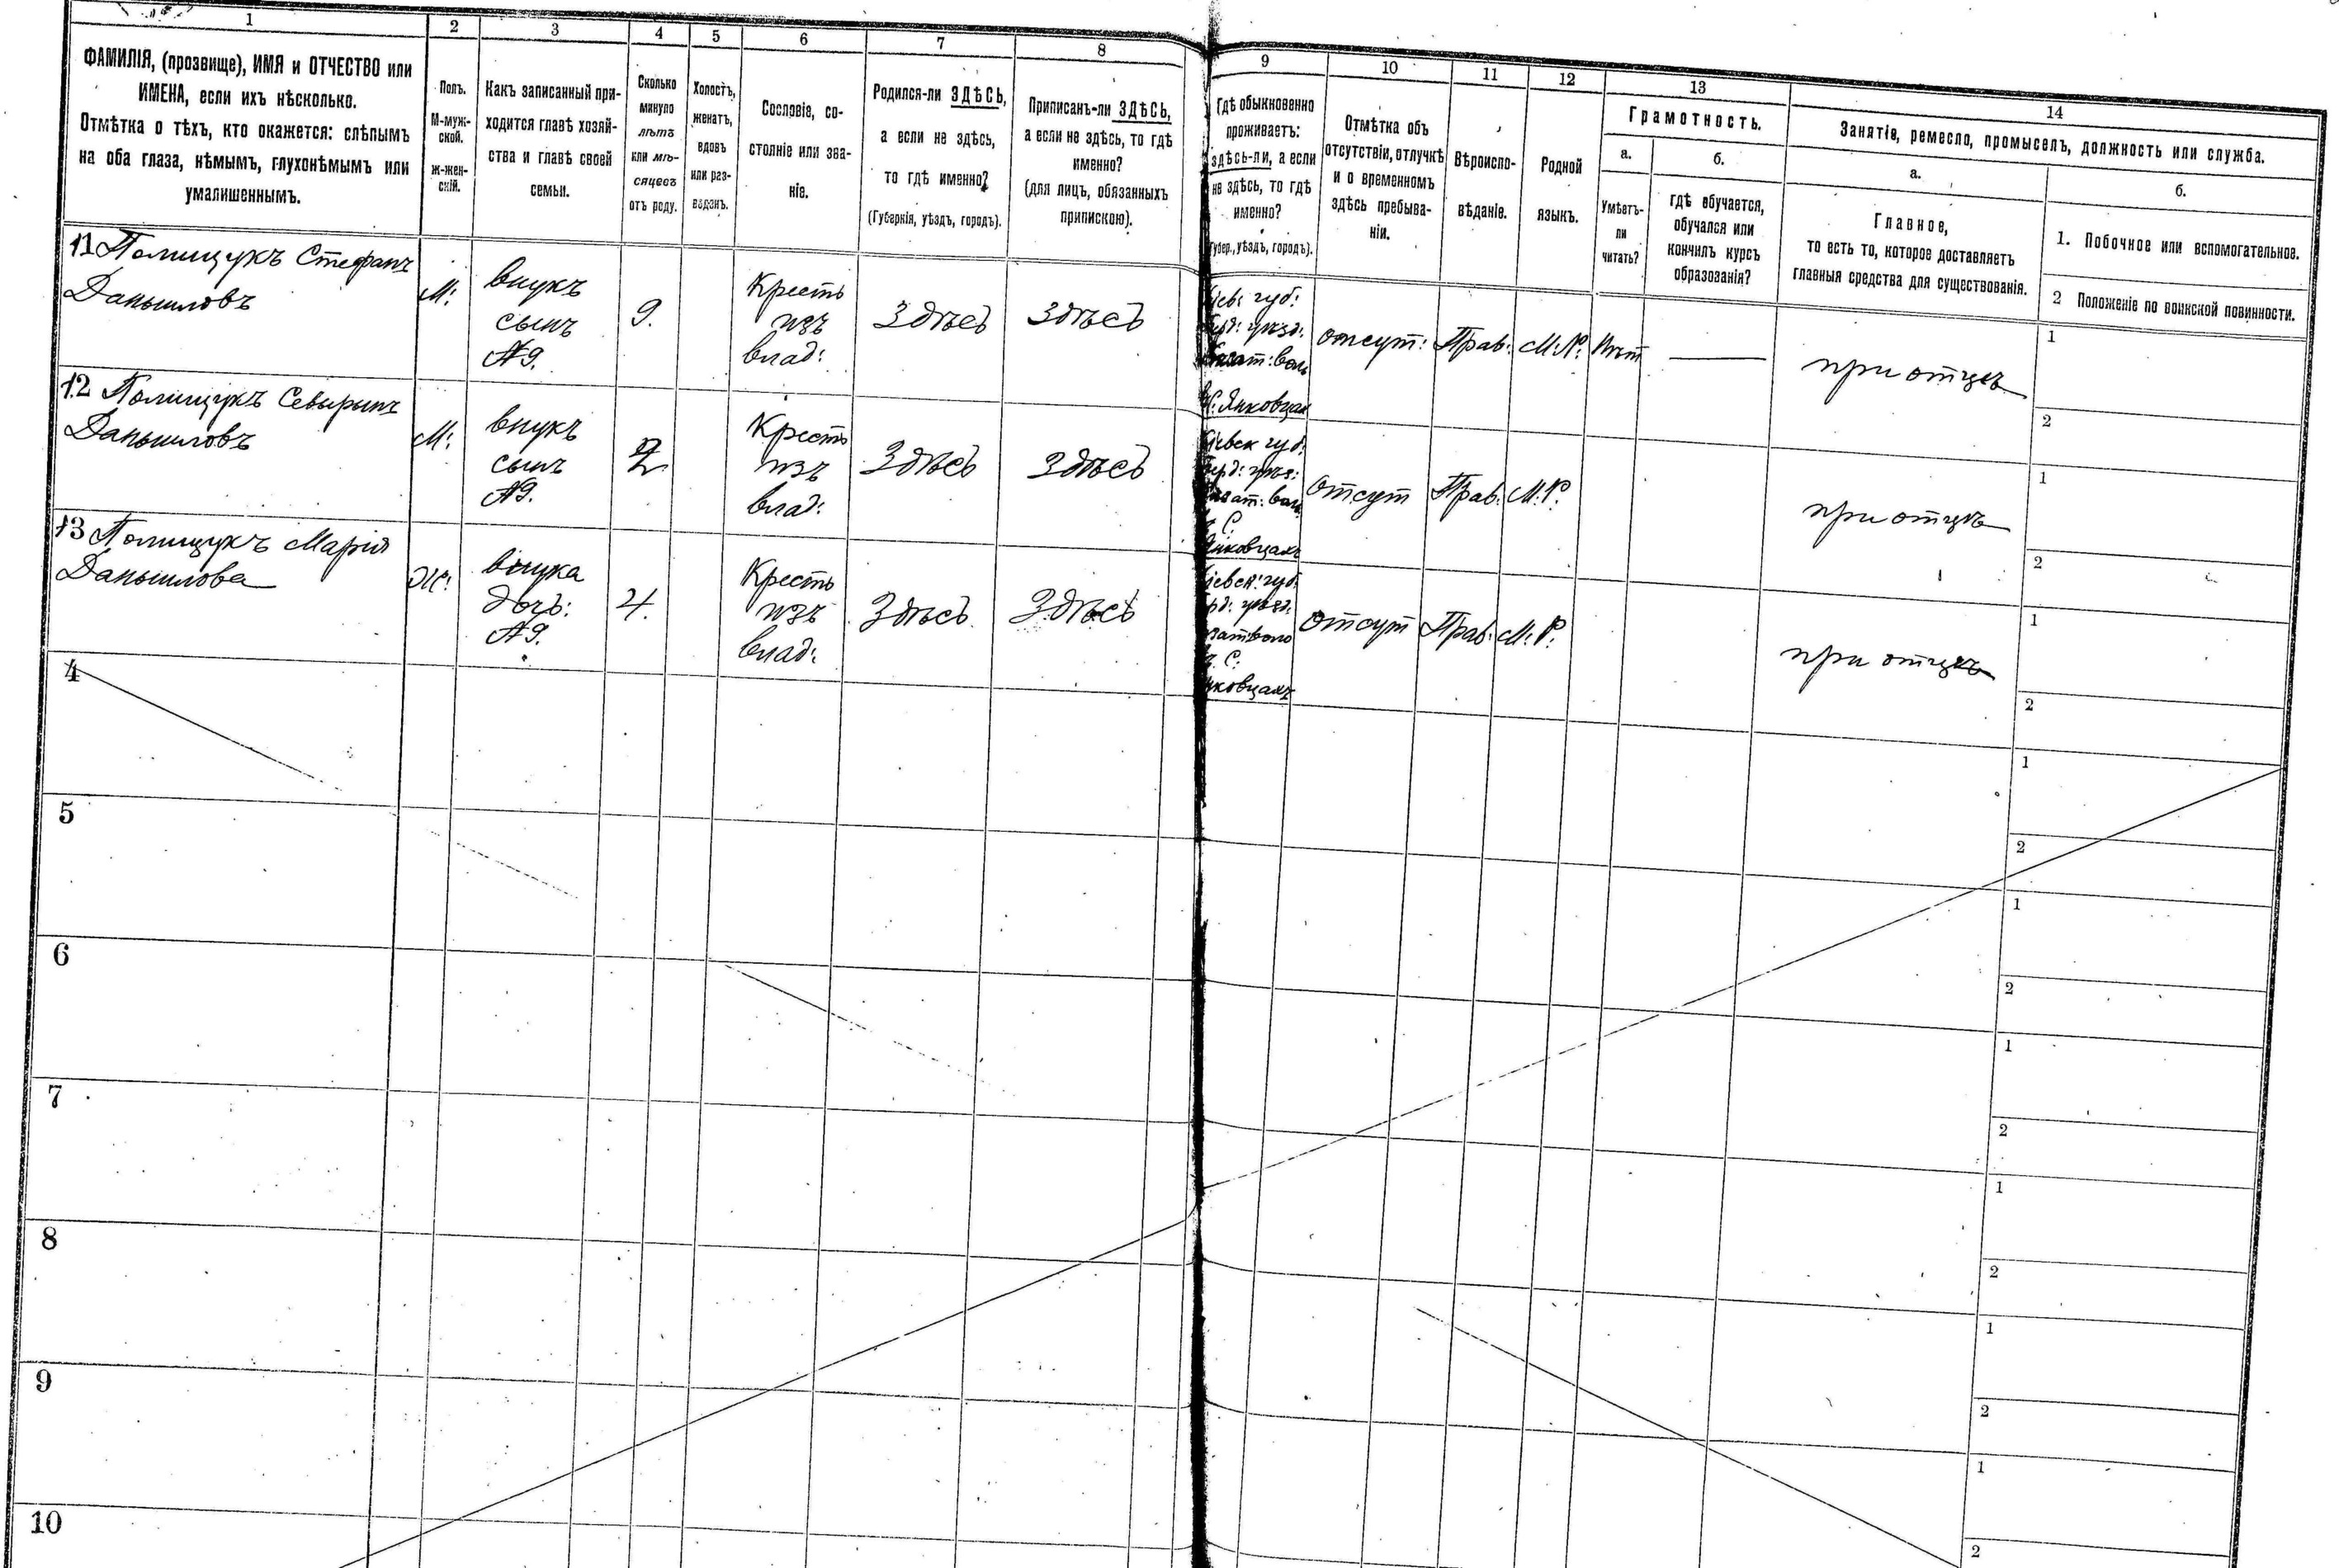 1 2 3 4 5 6 7 8 9 10 11 12 13 14
ФАМИЛІЯ, (прозвище), ИМЯ и ОТЧЕСТВО или
ИМЕНА, если ихъ нѣсколько.
Отмѣтка о тѣхъ, кто окажется: слѣпымъ
на оба глаза, нѣмымъ, глухонѣмымъ или
умалишеннымъ.
Полъ.
М-муж-
ской.
Ж-жен-
скій.
Какъ записанный при-
ходится главѣ хозяй-
ства и главѣ своей
семьи.
Сколько
минуло
лѣтъ
или мѣ-
сяцевъ
отъ роду.
Холостъ,
женатъ,
вдовъ
или раз-
веденъ.
Сословіе, со-
стояніе или зва-
ніе.
Родился-ли ЗДѢСЬ,
а если не здѣсь,
то гдѣ именно?
(Губернія, уѣздъ, городъ).
Приписанъ-ли ЗДѢСЬ,
а если не здѣсь, то гдѣ
именно?
(для лицъ, обязанныхъ
припискою).
Гдѣ обыкновенно
проживаетъ:
здѣсь-ли, а если
не здѣсь, то гдѣ
именно?
(Губер., уѣздъ, городъ).
Отмѣтка объ
отсутствіи, отлучкѣ
и о временномъ
здѣсь пребыва-
ніи.
Вѣроиспо-
вѣданіе.
Родной
языкъ.
Грамотность.
а.
Умѣетъ-
ли
читать?
б.
гдѣ обучается,
обучался или
кончилъ курсъ
образованія?
Занятіе, ремесло, промыселъ, должность или служба.
а.
Главное,
то есть то, которое доставляетъ
главныя средства для существованія.
б.
1. Побочное или вспомогательное.
2 Положеніе по воинской повинности.
11 Полищукъ Стефанъ
Данышловъ
М:
внукъ
сынъ
№9.
9.
Кресть
изъ
влад:
Здѣсь
Здѣсь
Кіев: губ:
Берд: уѣзд:
волъ
Янковцах
отсут:
Прав:
М:Р:
Нѣт
при отцѣ
1
2
12 Полищукъ Севырынъ
Данышловъ
М:
внукъ
сынъ
№9.
Кресть
изъ
влад:
Здѣсь
Здѣсь
Кіевск губ:
Берд: уѣз:
С.
Янковцахъ
Отсут
Прав:
М:Р.
при отцѣ
1
2
13 Полищукъ Марія
Данышлова
Ж:
внука
дочь:
№9.
4.
Кресть
изъ
влад:
Здѣсь
Здѣсь
Кіевск: губ:
Берд: уѣзд:
С:
Янковцахъ
отсут
Прав:
М:Р:
при отцѣ
1
2
4
1
2
5
1
2
6
1
2
7
1
2
8
1
2
9
1
2
10